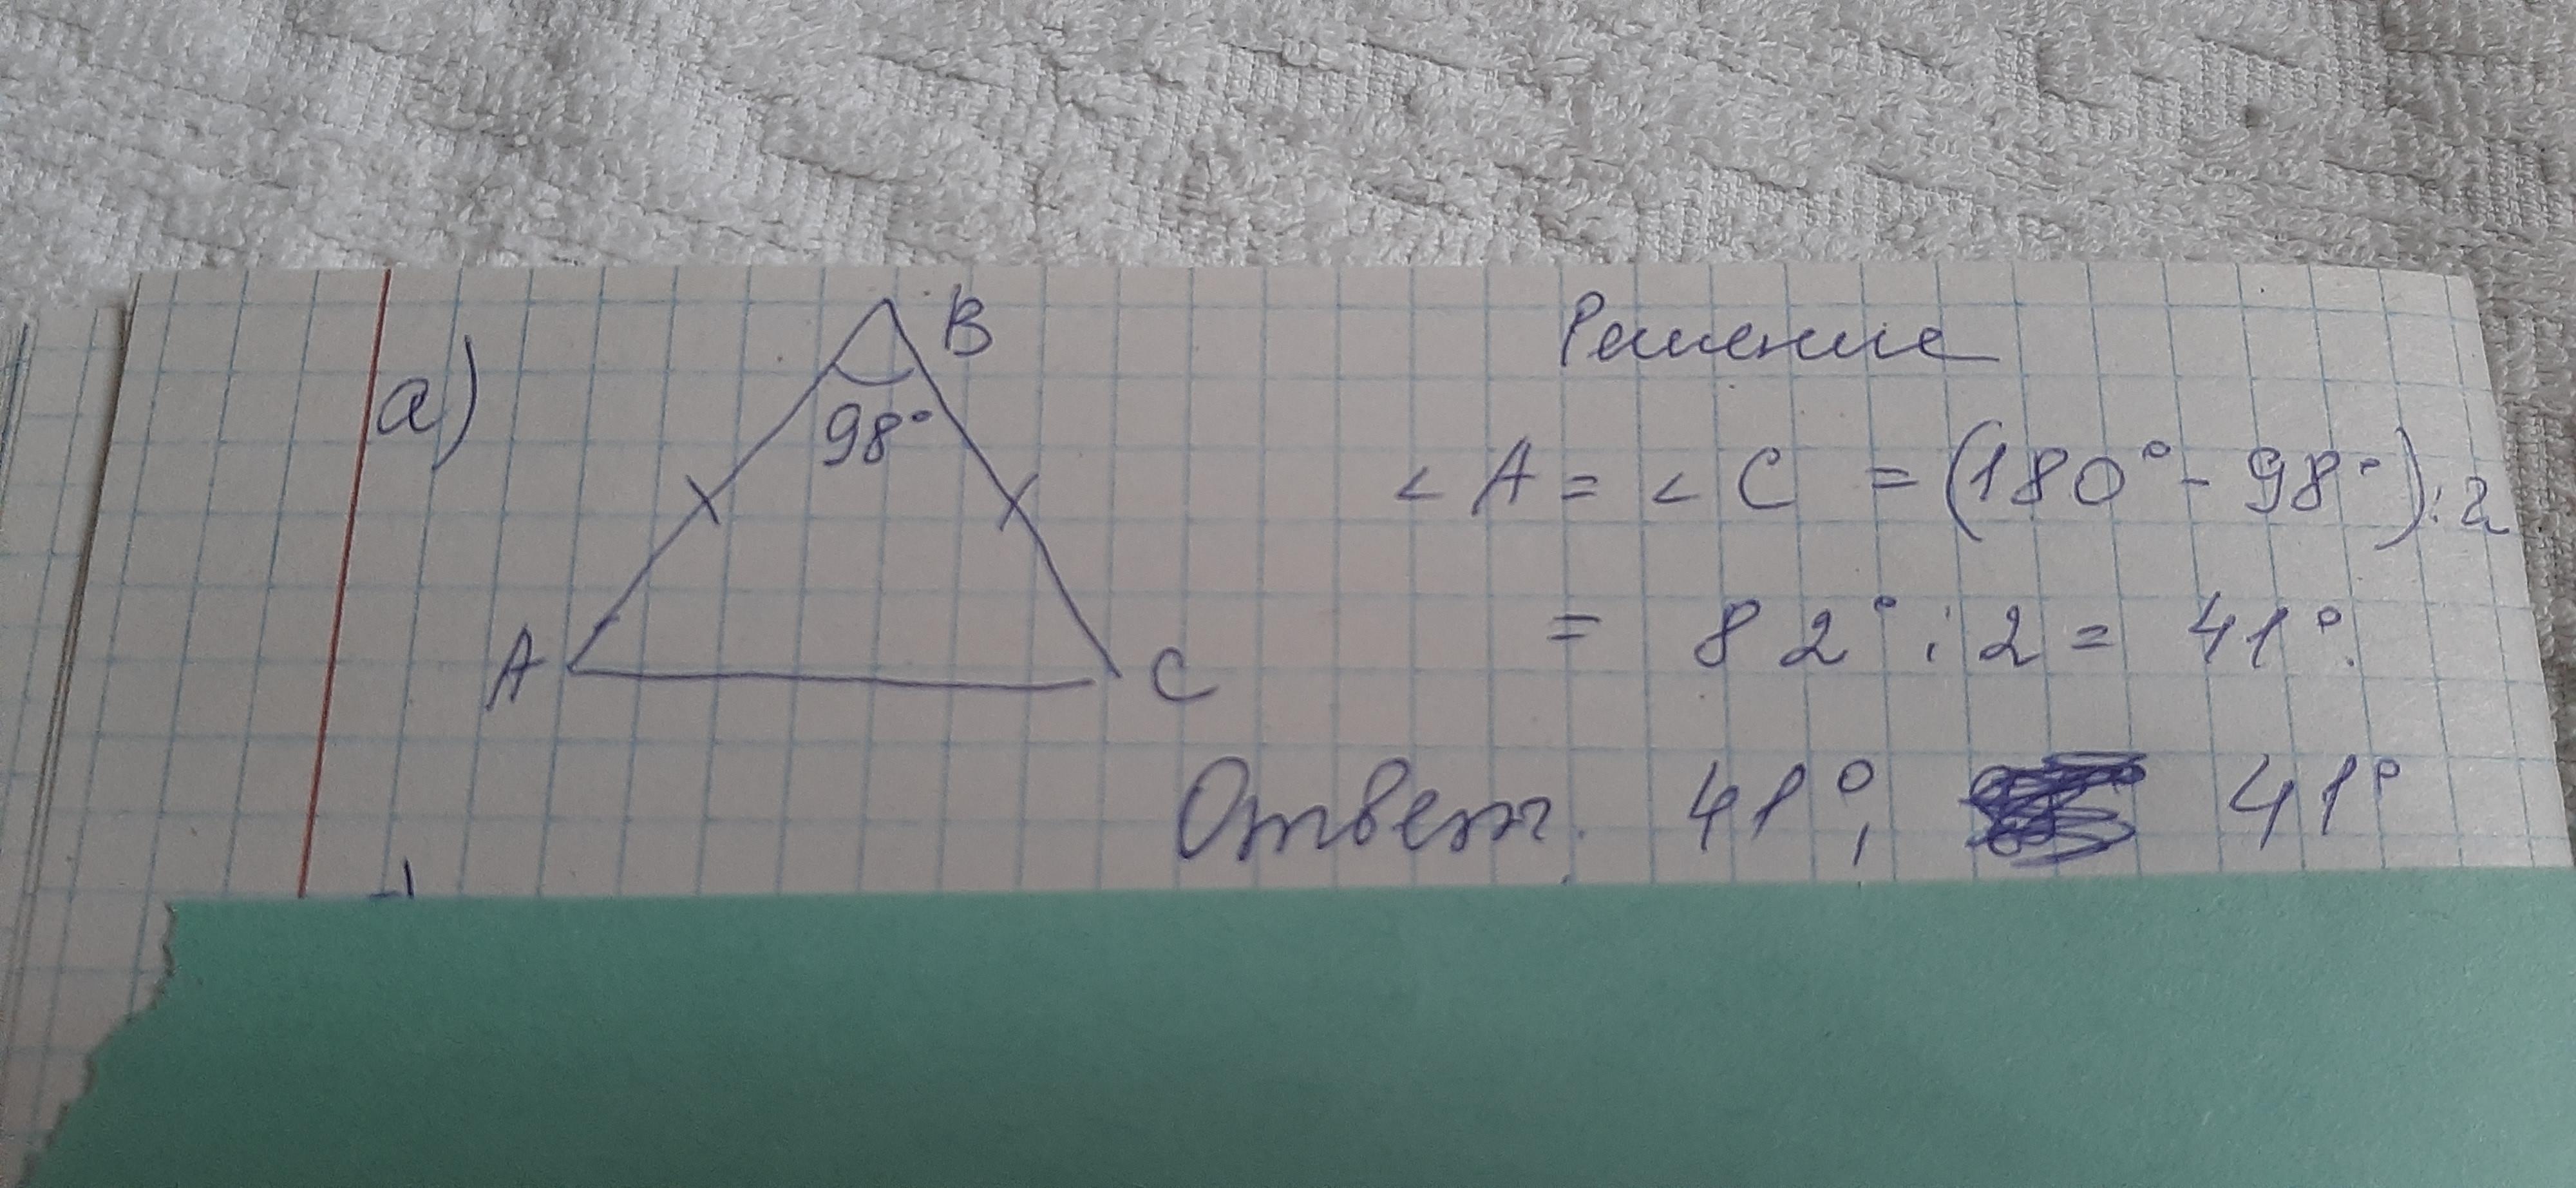 а)
B
98°
A
C
Решение
∠A = ∠C = (180° - 98°) : 2
= 82° : 2 = 41°.
Ответ: 41°, 41°